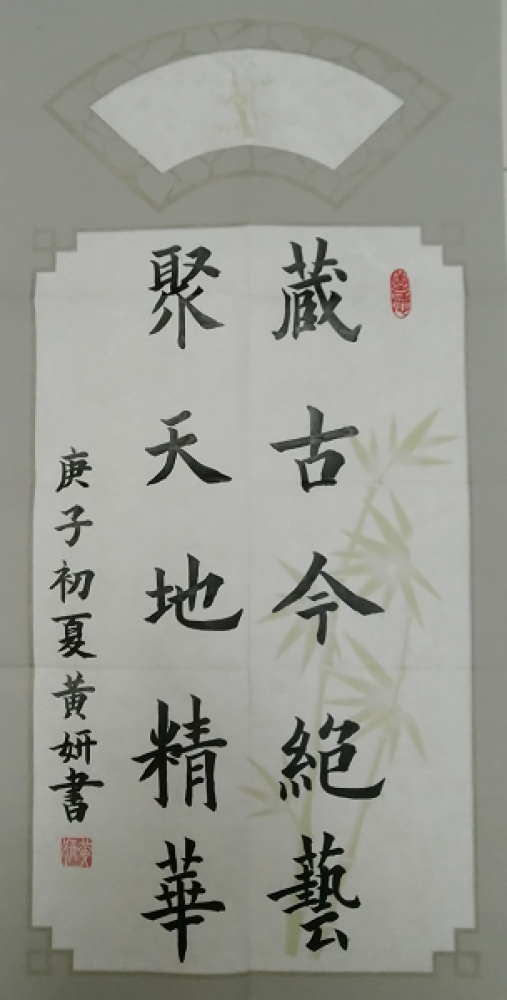 藏古今絕藝
聚天地精華
庚子初夏黄妍書